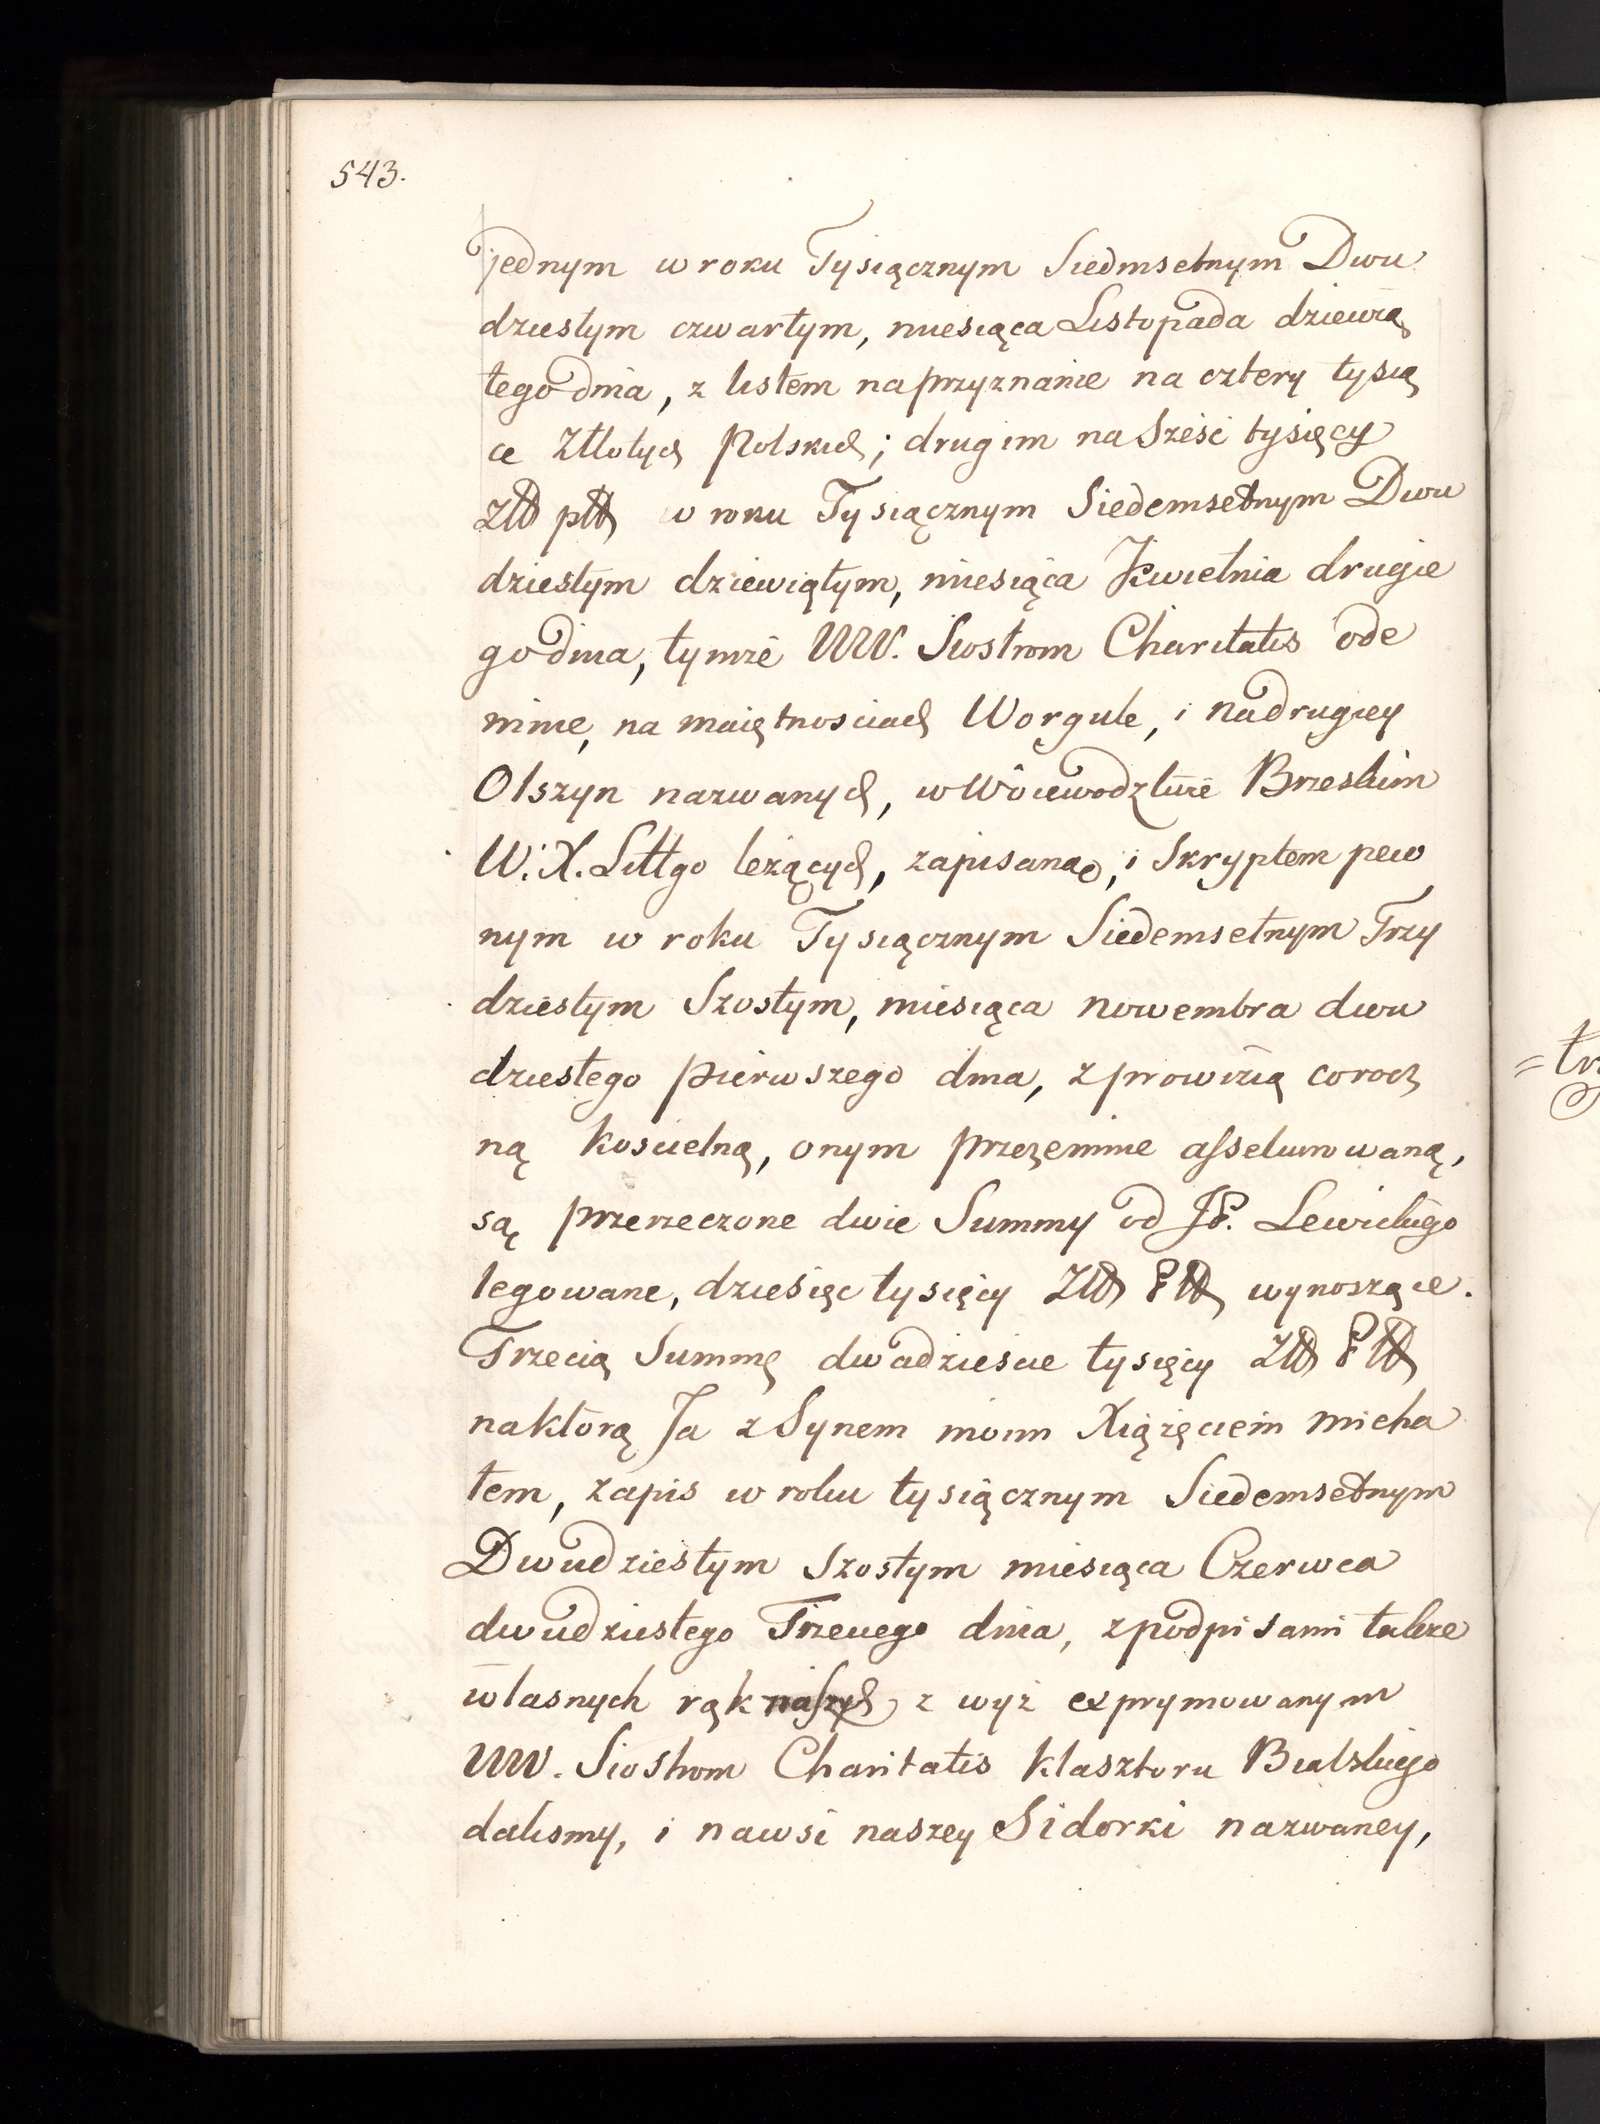 543.
jednym w roku Tysiącznym Siedmsetnym Dwu
dziestym czwartym, miesiąca Listopada dziewią
tego dnia, z listem na przyznanie na cztery tysią
ce Złłotych Polskich; drugim na Sześć tysięcy
Złł płł w roku Tysiącznym Siedemsetnym Dwu
dziestym dziewiątym, miesiąca Kwietnia drugie
go dnia, tymże WW. Siostrom Charitatis ode
mnie, na maiętnosciach Worgule, i na drugiey
Olszyn nazwanych, w Woiewodztwie Brzeskim
W. X. Littgo leżących, zapisana, i Skryptem pew
nym w roku Tysiącznym Siedemsetnym Trzy
dziestym Szostym, miesiąca nowembra dwu
dziestego pierwszego dnia, z prowizią corocz
ną koscielną, onym przezemnie assekurowaną,
są przerzeczone dwie Summy od JP. Lewickiego
legowane, dziesięc tysięcy Złł Płł wynoszące.
Trzecią Summę dwadziescie tysięcy Złł Płł
na ktorą Ja z Synem moim Xiążęciem Micha
łem, zapis w roku tysiącznym Siedemsetnym
Dwudziestym Szostym miesiąca Czerwca
dwudziestego Trzeciego dnia, z podpisami także
własnych rąk naszych z wyż exprymowanym
WW. Siostrom Charitatis klasztoru Bialskiego
dalismy, i na wsi naszey Sidorki nazwaney,